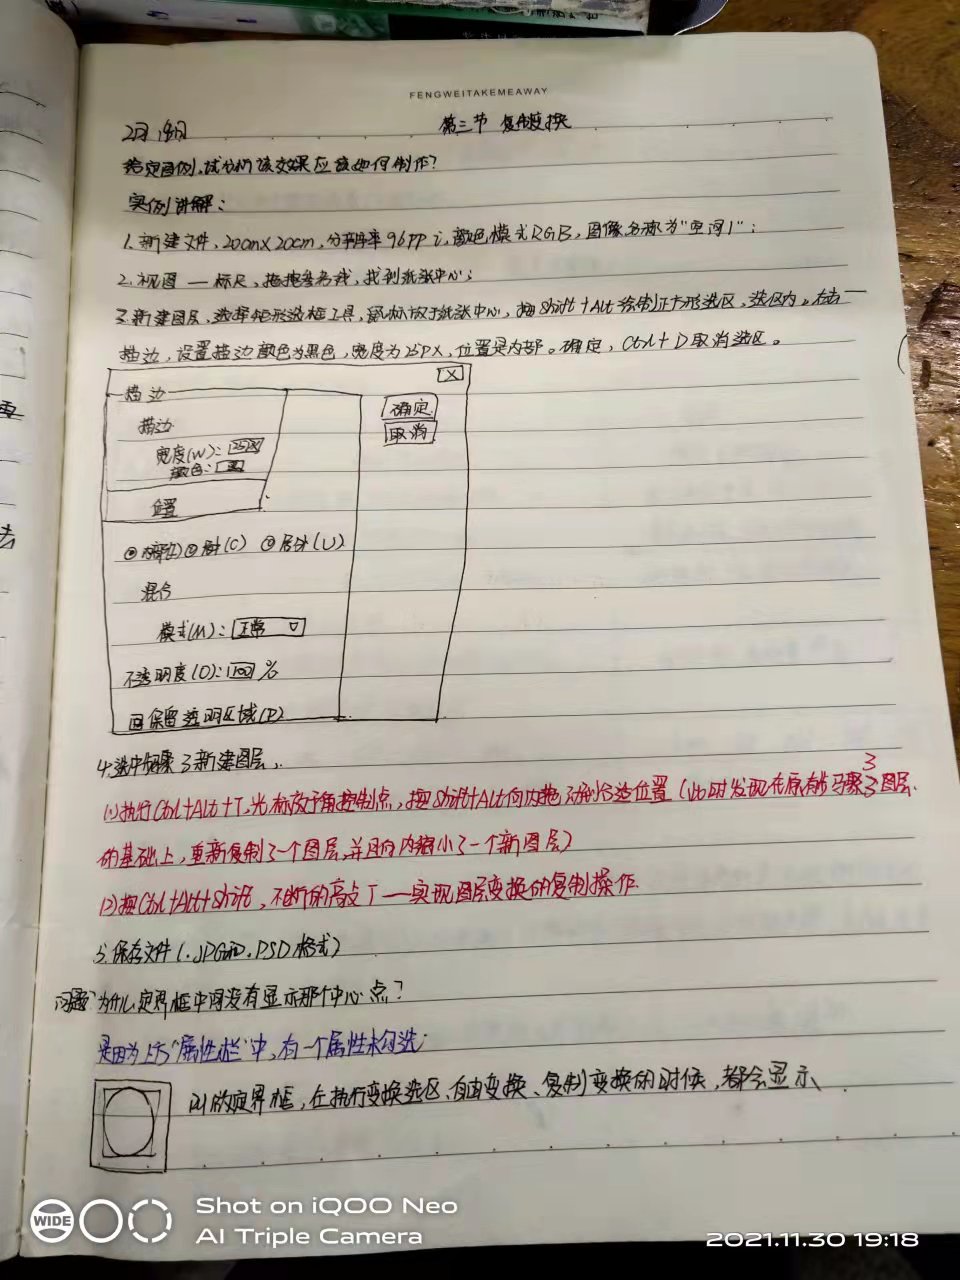 FENGWEITAKEMEAWAY
第三节 复制变换
给定图例,试分析该效果应该如何制作?
实例讲解:
1.新建文件,20cm×20cm,分辨率96ppi,颜色模式RGB,图像名称为"空间1";
2.视图——标尺,拖拽参考线,找到纸张中心;
3.新建图层,选择矩形选框工具,鼠标放于纸张中心,按Shift+Alt绘制正方形选区,选区内。右击—
描边,设置描边颜色为黑色,宽度为25PX,位置是内部。确定,Ctrl+D取消选区。
X
描边
描边
宽度(W):
颜色:
位置
内部(I) 居中(C) 居外(U)
混合
模式(M):正常
不透明度(O):100%
保留透明区域(P)
确定
取消
4.选中步骤3新建图层,
3
(1)执行Ctrl+Alt+T,光标放于角控制点,按Shift+Alt向内拖动到合适位置(此时发现在原有步骤3图层
的基础上,重新复制了一个图层,并且向内缩小了一个新图层)
(2)按Ctrl+Alt+Shift,不断的高点T——实现图层变换的复制操作.
5.保存文件(.JPG和.PSD格式)
问题:为什么定界框中间没有显示那个中心点?
是因为上方"属性栏"中,有一个属性未勾选;
定界框,在执行变换选区、自由变换、复制变换的时候,都会显示、
WIDE
Shot on iQOO Neo
AI Triple Camera
2021.11.30 19:18